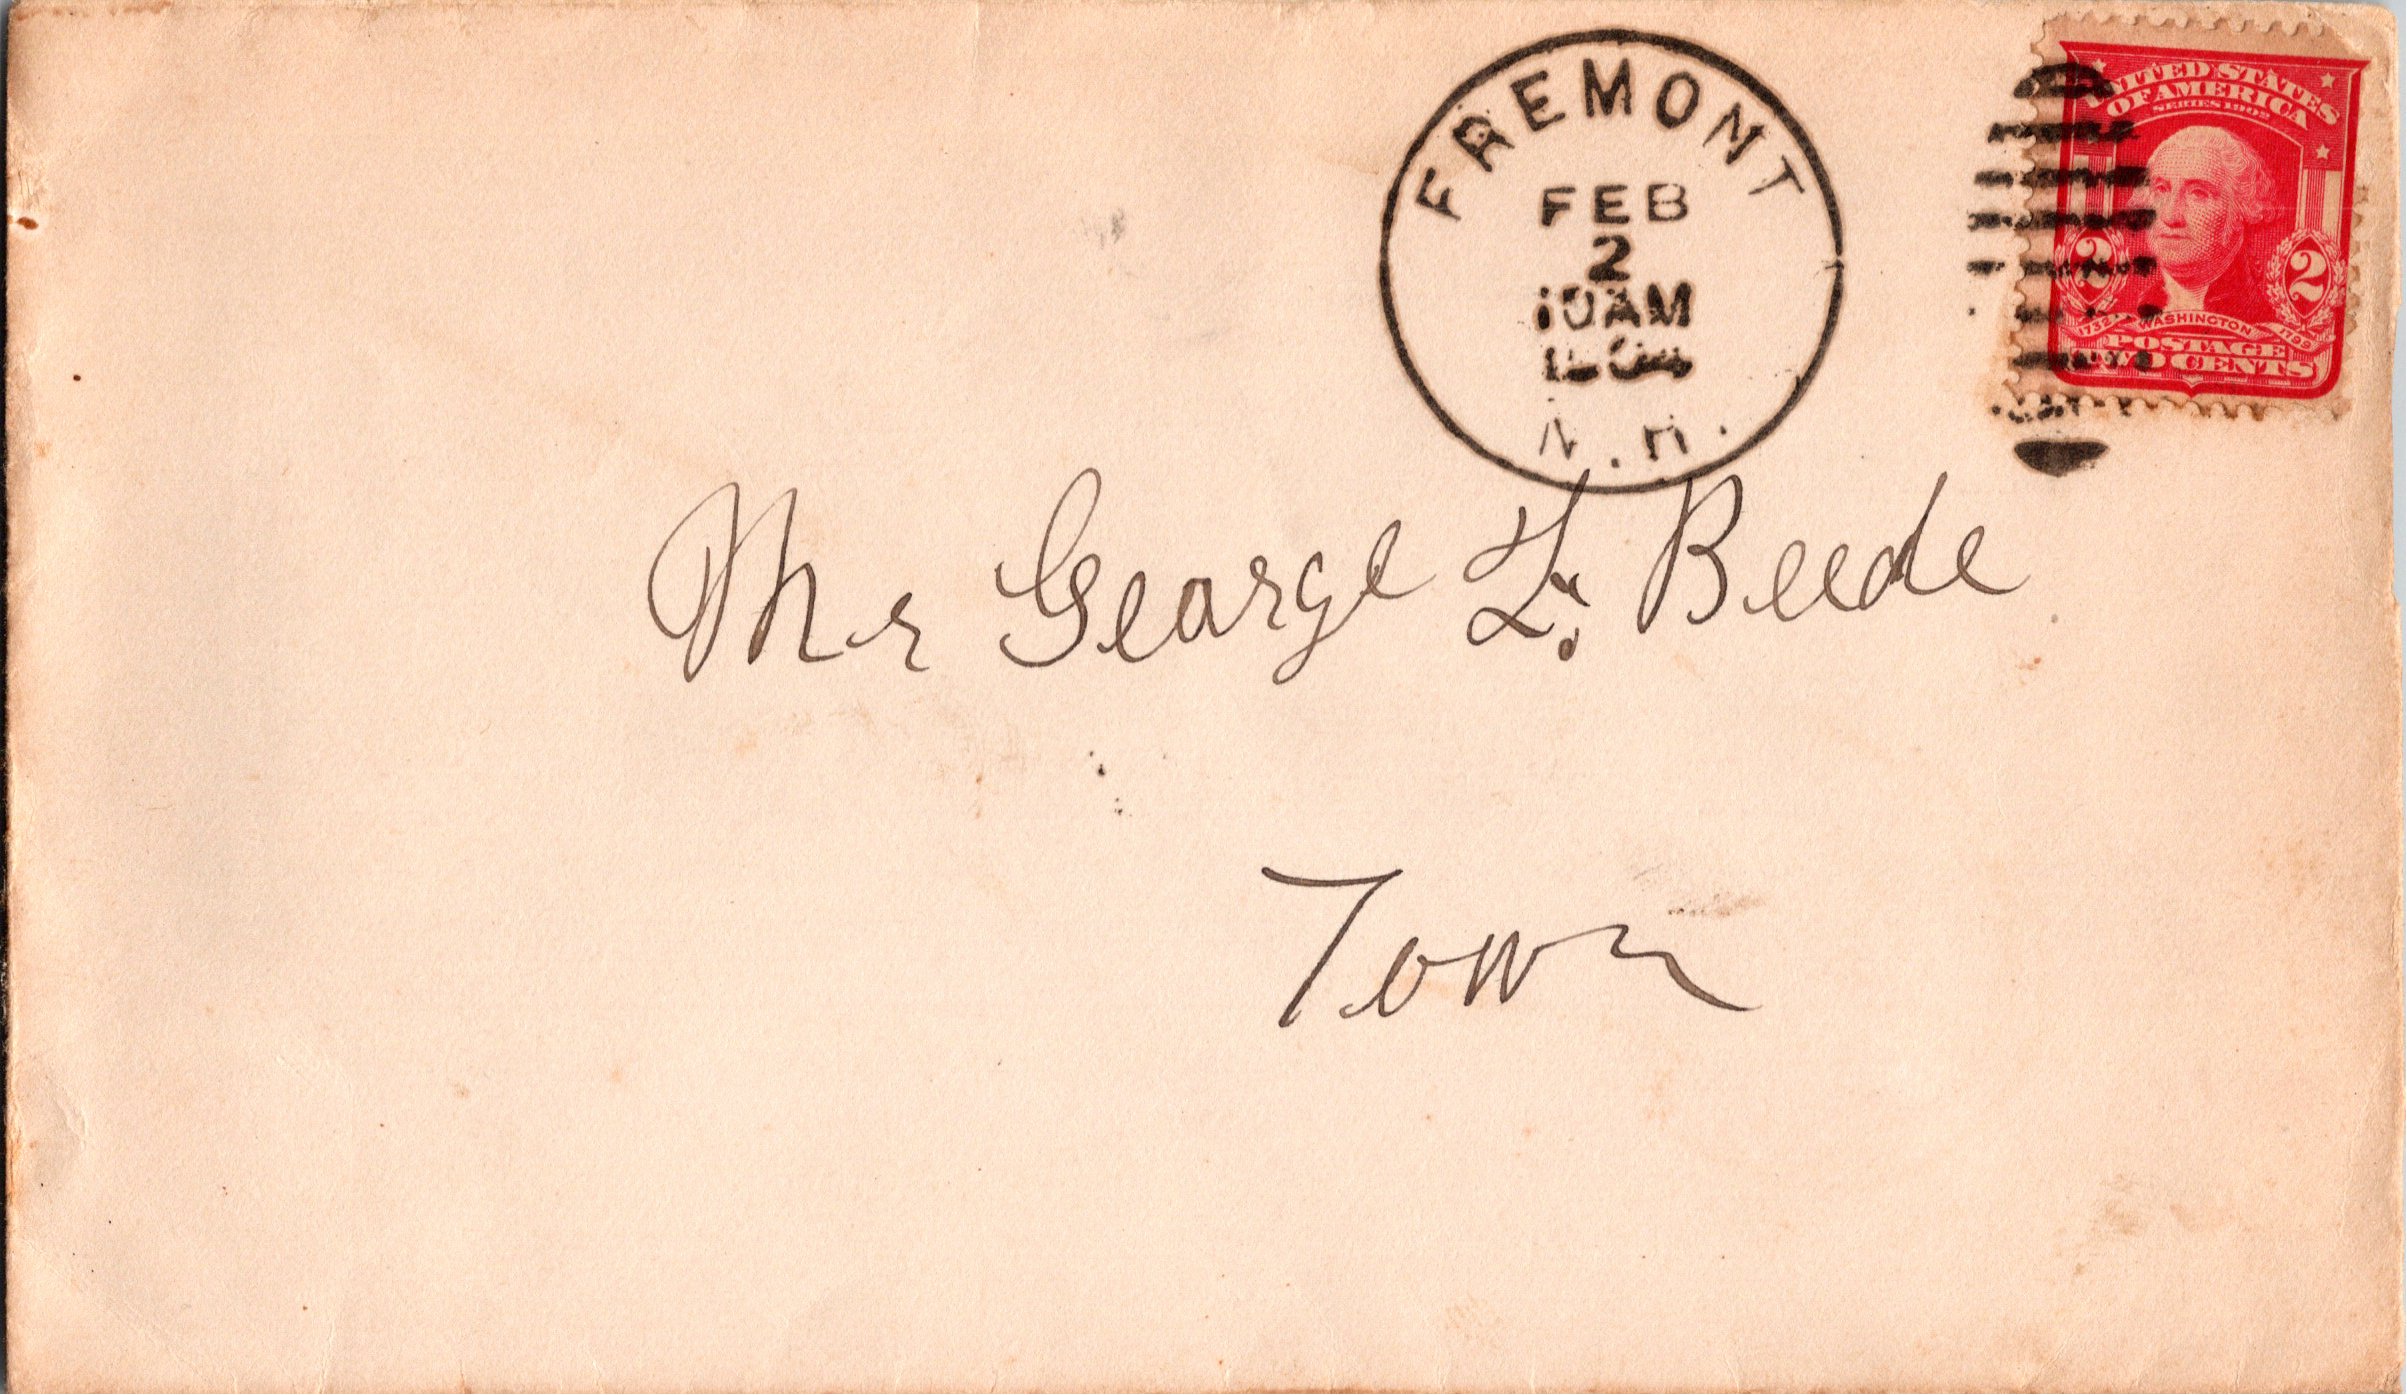 FREMONT
FEB
2
10AM
N.H.
UNITED STATES
OF AMERICA
SERIES 1902
2 2
1732 WASHINGTON 1799
POSTAGE
TWO CENTS
Mr George L. Beede
Town